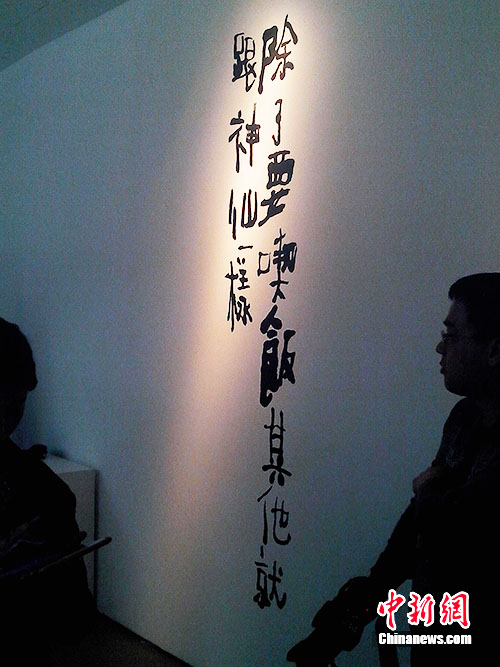 除了要喫飯其他就
跟神仙一樣
中新網
Chinanews.com